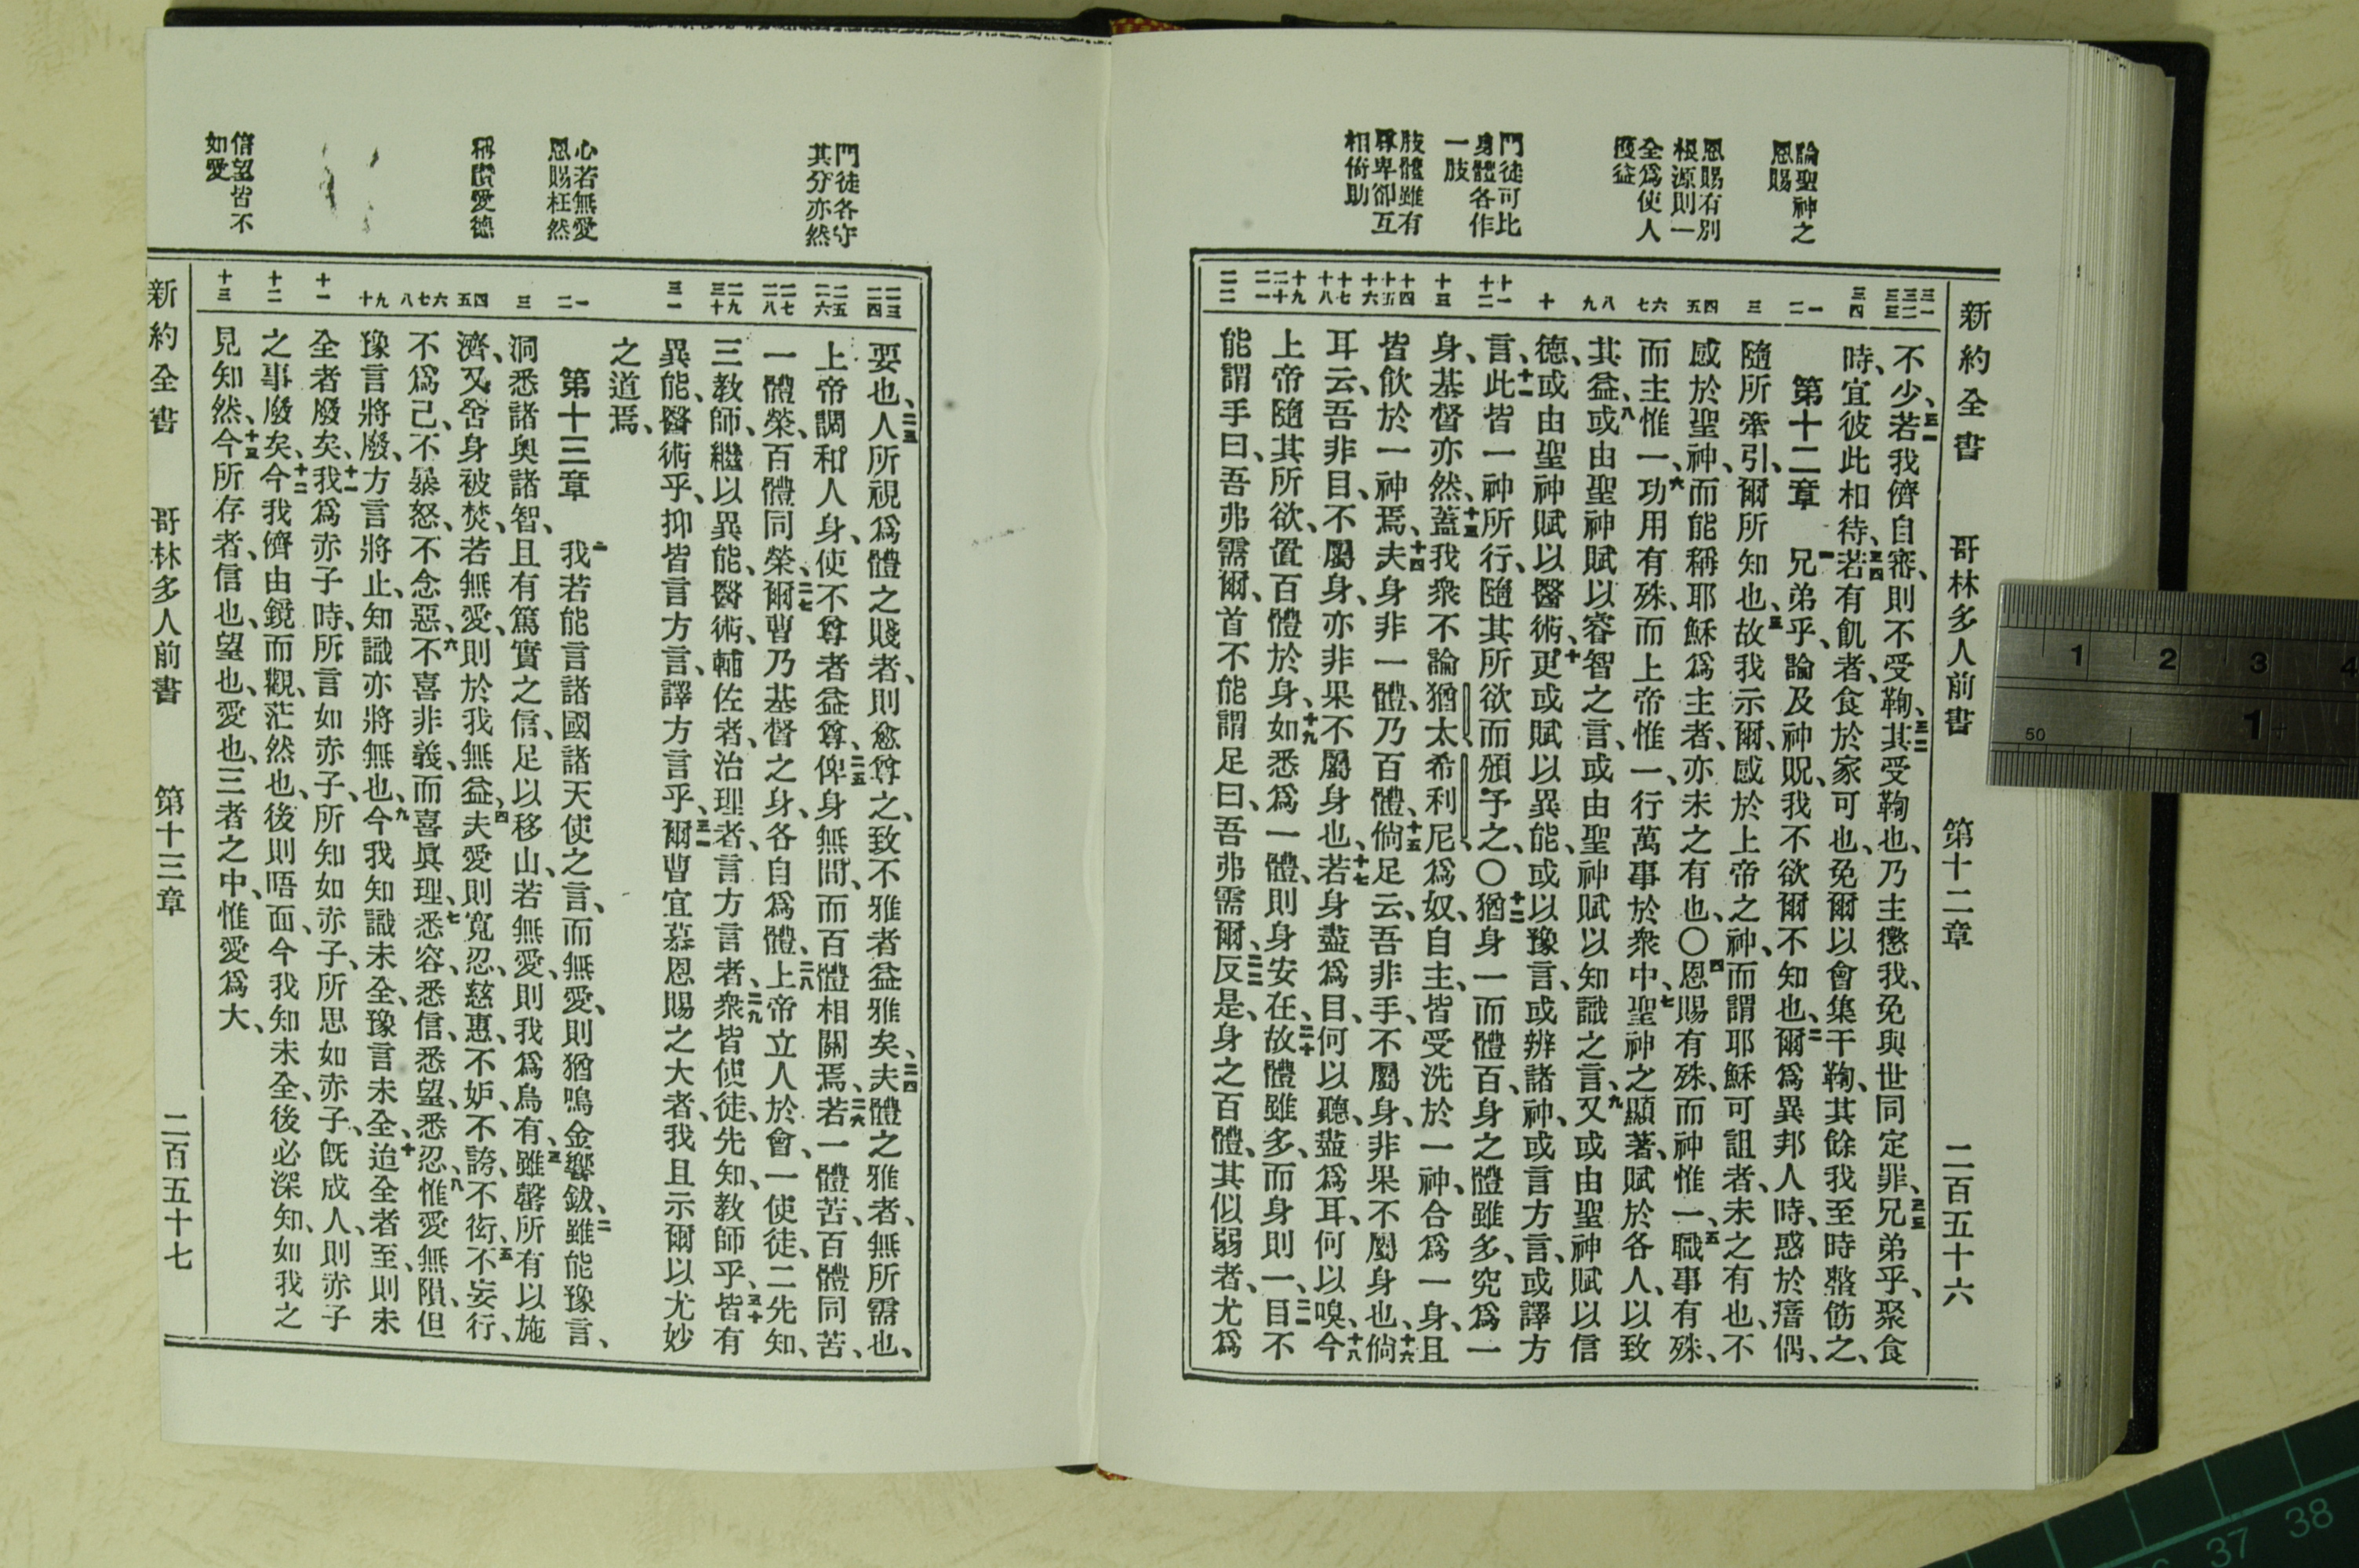 新約全書 哥林多人前書 第十二章 二百五十六
論聖神之
恩賜
恩賜有別
根源則一
全爲使人
獲益
門徒可比
身體各作
一肢
肢體雖有
尊卑卻互
相倚助
三一 三二 三三
三四
一 二
三
四 五
六 七
八 九
十
十一 十二
十三
十四 十五 十六
十七 十八
十九 二十 二一
二二
不少、三一若我儕自審、則不受鞫、三二其受鞫也、乃主懲我、免與世同定罪、三三兄弟乎、聚食
時、宜彼此相待、三四若有飢者、食於家可也、免爾以會集干鞫、其餘我至時整飭之、
第十二章 一兄弟乎、論及神貺、我不欲爾不知也、二爾爲異邦人時、惑於瘖偶、
隨所牽引、爾所知也、三故我示爾、感於上帝之神、而謂耶穌可詛者、未之有也、不
感於聖神、而能稱耶穌爲主者、亦未之有也、〇四恩賜有殊、而神惟一、五職事有殊、
而主惟一、六功用有殊、而上帝惟一、行萬事於衆中、七聖神之顯著、賦於各人、以致
其益、八或由聖神賦以睿智之言、或由聖神賦以知識之言、九又或由聖神賦以信
德、或由聖神賦以醫術、十更或賦以異能、或以豫言、或辨諸神、或言方言、或譯方
言、十一此皆一神所行、隨其所欲而頒予之、〇十二猶身一而體百、身之體雖多、究爲一
身、基督亦然、十三蓋我衆不論猶太希利尼爲奴、自主、皆受洗於一神、合爲一身、且
皆飲於一神焉、十四夫身非一體、乃百體、十五倘足云、吾非手、不屬身、非果不屬身也、十六倘
耳云、吾非目、不屬身、亦非果不屬身也、十七若身盡爲目、何以聽、盡爲耳、何以嗅、十八今
上帝隨其所欲、置百體於身、十九如悉爲一體、則身安在、二十故體雖多、而身則一、二一目不
能謂手曰、吾弗需爾、首不能謂足曰、吾弗需爾、二二反是、身之百體、其似弱者、尤爲
門徒各守
其分亦然
心若無愛
恩賜枉然
稱讚愛德
信望皆不
如愛
二三 二四
二五 二六
二七 二八
二九 三十
三一
一 二
三
四 五
六 七 八
九 十
十一
十二
十三
要也、二三人所視爲體之賤者、則愈尊之、致不雅者益雅矣、二四夫體之雅者、無所需也、
上帝調和人身、使不尊者益尊、二五俾身無間、而百體相關焉、二六若一體苦、百體同苦、
一體榮、百體同榮、二七爾曹乃基督之身、各自爲體、二八上帝立人於會、一使徒、二先知、
三教師、繼以異能、醫術、輔佐者、治理者、言方言者、二九衆皆使徒、先知、教師乎、三十皆有
異能、醫術乎、抑皆言方言、譯方言乎、三一爾曹宜慕恩賜之大者、我且示爾以尤妙
之道焉、
第十三章 一我若能言諸國諸天使之言、而無愛、則猶鳴金響鈸、二雖能豫言、
洞悉諸奧諸智、且有篤實之信、足以移山、若無愛、則我爲烏有、三雖罄所有以施
濟、又舍身被焚、若無愛、則於我無益、四夫愛則寬忍、慈惠、不妒、不誇、不衒、五不妄行、
不爲己、不暴怒、不念惡、六不喜非義、而喜眞理、七悉容、悉信、悉望、悉忍、八惟愛無隕、但
豫言將廢、方言將止、知識亦將無也、九今我知識未全、豫言未全、十迨全者至、則未
全者廢矣、十一我爲赤子時、所言如赤子、所知如赤子、所思如赤子、旣成人、則赤子
之事廢矣、十二今我儕由鏡而觀、茫然也、後則晤面、今我知未全、後必深知、如我之
見知然、十三今所存者、信也、望也、愛也、三者之中、惟愛爲大、
新約全書 哥林多人前書 第十三章 二百五十七
1 2 3 4
50 1
37 38